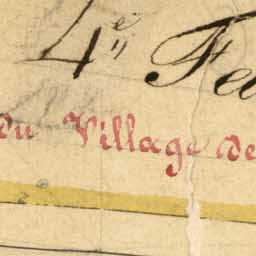 4e Fe
du Village de